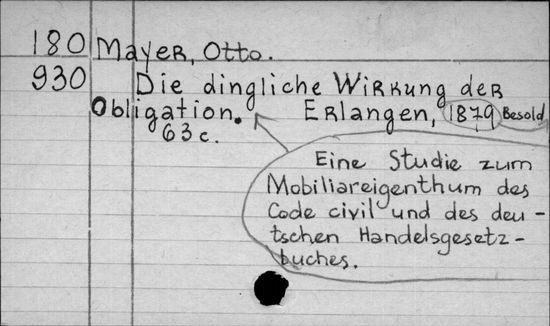 180 Mayer, Otto.
930 Die dingliche Wirkung der
Obligation. Erlangen, 1879 Besold
63 c.
Eine Studie zum
Mobiliareigenthum des
Code civil und des deu-
tschen Handelsgesetz-
buches.